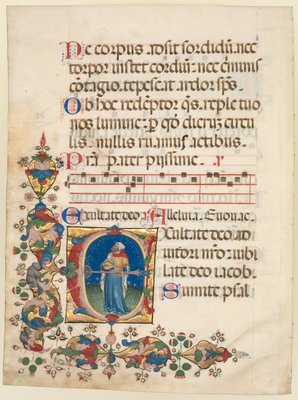 Ne corpus adsit sordidum: nec
torpor instet cordium: nec criminis
contagio. tepescat ardor sp̄s.
Ob hoc redēptor q̄s. reple tuo
nos lumine: ꝑ qd̄ dierum circu
lis. nullis ruamus actibus.
Pr̄a pater pijssime. v
Exultate deo a. Alleluia. Euouae.
Exultate deo ad
iutori nr̄o: iubi
late deo iacob.
Sumite psal